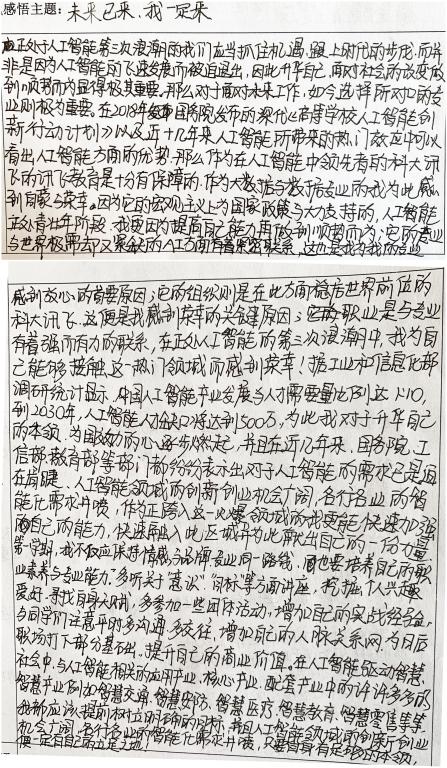 感悟主题：未来已来，我一定来
正处于人工智能第三次浪潮的我们应当抓住机遇，跟上时代的步伐，而并
非是因为人工智能的飞速发展而被迫退出，因此升华自己，面对社会的改变做
到顺势而为显得极其重要。那么对于面对未来工作，如今选择所对口的专
业则极为重要。在2018年国务院发布的《高等学校人工智能创
新行动计划》以及近十几年来人工智能所带来的热门效应中可以
看出人工智能方面的优势，那么作为在人工智能中领先者的科大讯
飞的讯飞教育是十分有保障的，作为大数据与数据专业的我为此感
到自豪与荣幸。因为它的宏观主义上为国家政策与大力支持的，人工智能
正处青壮年阶段，我要因为提高自己能力再做到顺势而为；它的专业
与世界极需求又紧缺的人工方面有着紧密联系，这也是我为我的专业
感到放心的首要原因；它的组织则是在此方面稳居世界前位的
科大讯飞，这便是我感到荣幸的关键原因；它的职业是与专业
有着强而有力的联系，在正处人工智能的第三次浪潮中，我为自
己能够接触这一热门领域而感到荣幸！据工业和信息化部
调研统计显示，中国人工智能产业发展与人才需要量比例达1:10，
到2030年，人工智能人才缺口将达到500万，为此我对于升华自己
的本领，为国效力的心逐步燃起，并且在近几年来，国务院、工
信部、教育部等部门都纷纷表示出对于人工智能的需求已是迫
在眉睫。人工智能领域的创新创业机会广阔，各行各业的智
能化需求井喷，作为正跨入这一火爆领域的我更能快速加强
自己的能力，快速融入此区域并为此献出自己的一份力量
第一学期，我不仅应保持情感与品牌专业同一路线，而也要培养自己的职
业素养与专业能力，多听关于“意识”“目标”等方面讲座，挖掘个人兴趣
爱好，寻找自身天赋，多参加一些团体活动，增加自己的实战经验，
与同学们注意平时多沟通多交往，增加自己的人脉关系网，为日后
职场打下部分基础，提升自己的商业价值。在人工智能驱动智慧
社会中，与人工智能相关的应用产业、核心产业、配套产业中的许许多多的
智慧产业例如智慧交通、智慧安防、智慧医疗、智慧教育、智慧零售等等
我都应该提前树立明确的目标，并且人工智能领域的创新创业
机会广阔，各行各业的智能化需求井喷，只要自身有足够的本领，
便一定有自己的立足之地！